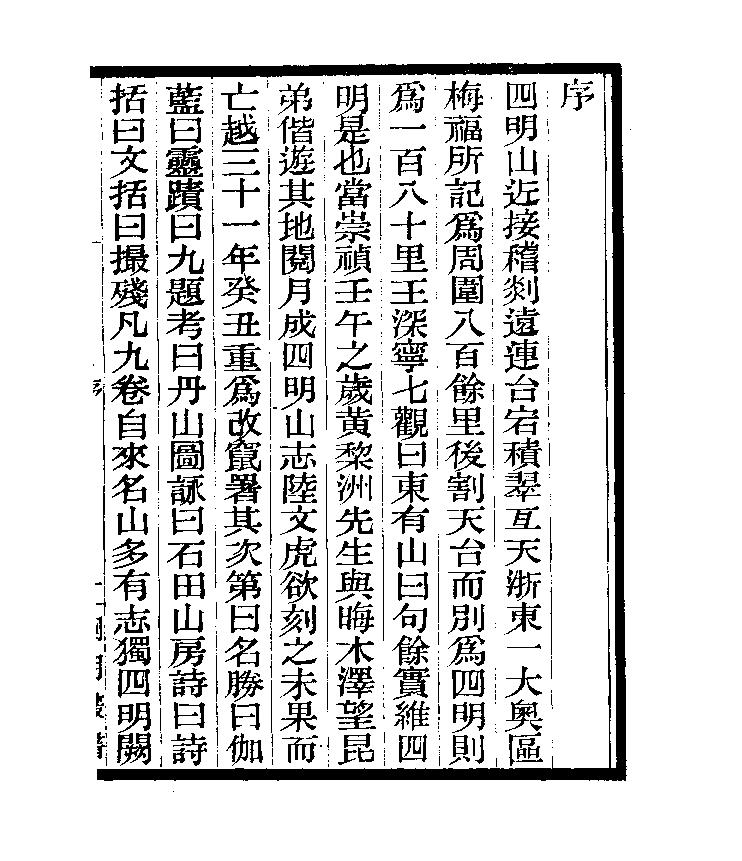 序
四明山近接稽剡遠連台宕積翠亙天浙東一大奧區
梅福所記爲周圍八百餘里後割天台而別爲四明則
爲一百八十里王深寧七觀曰東有山曰句餘實維四
明是也當崇禎壬午之歲黃黎洲先生與晦木澤望昆
弟偕遊其地閱月成四明山志陸文虎欲刻之未果而
亡越三十一年癸丑重爲改竄署其次第曰名勝曰伽
藍曰靈蹟曰九題考曰丹山圖詠曰石田山房詩曰詩
括曰文括曰撮殘凡九卷自來名山多有志獨四明闕
序